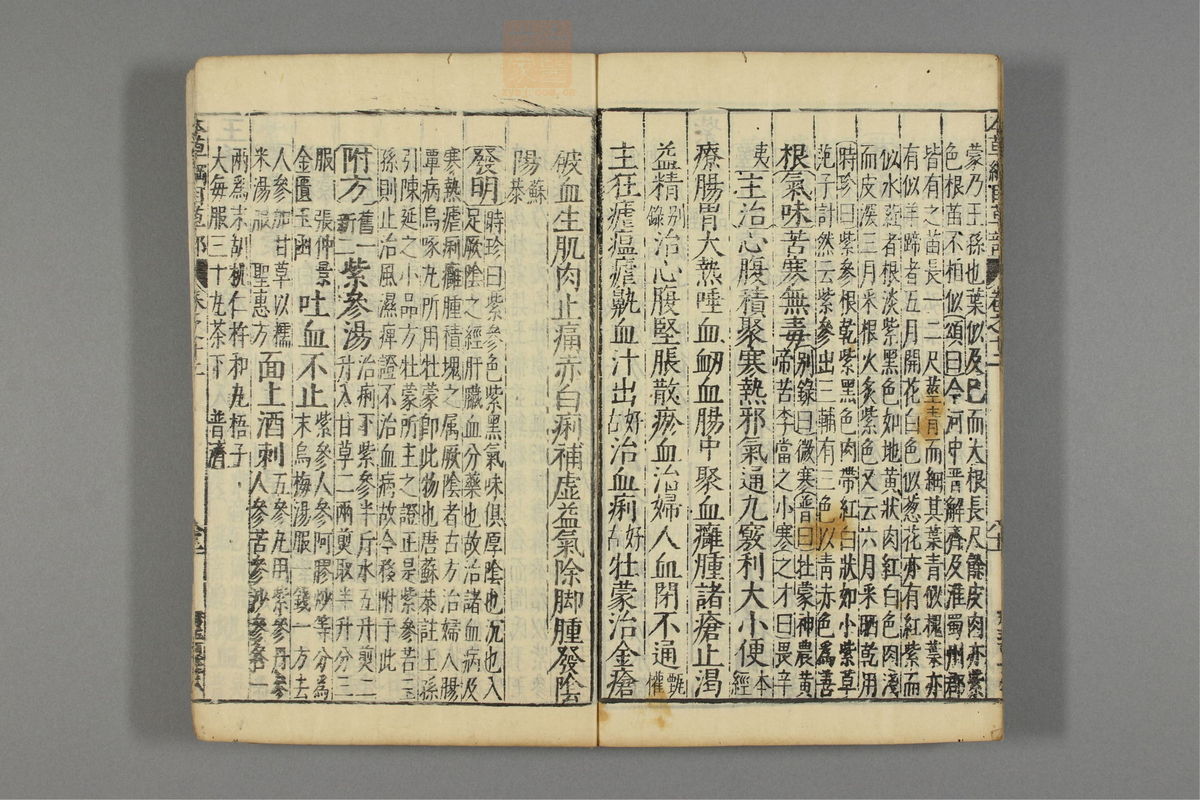 蒙乃王孫也葉似及巳而大根長尺餘皮肉亦紫
色根苗不相似頌曰今河中晋解齊及淮蜀州郡
皆有之苗長一二尺莖青而細其葉青似槐葉亦
有似羊蹄者五月開花白色似葱花亦有紅紫而
似水葒者根淡紫黑色如地黃狀肉紅白色肉淺
而皮深三月采根火炙紫色又云六月采晒乾用
時珍曰紫參根乾紫黑色肉帶紅白狀如小紫草
范子計然云紫參出三輔有三色以青赤色爲善
根氣味苦寒無毒別錄曰微寒普曰牡蒙神農黃
帝苦李當之小寒之才曰畏辛
夷主治心腹積聚寒熱邪氣通九竅利大小便本
經
療腸胃大熱唾血衄血腸中聚血癰腫諸瘡止渴
益精別
錄治心腹堅脹散瘀血治婦人血閉不通甄
權
主狂瘧瘟瘧鼽血汁出好
古治血痢好
古牡蒙治金瘡
破血生肌肉止痛赤白痢補虛益氣除脚腫發陰
陽蘇
恭
發明時珍曰紫參色紫黑氣味俱厚陰也沉也入
足厥陰之經肝臟血分藥也故治諸血病及
寒熱瘧痢癰腫積塊之属厥陰者古方治婦人腸
覃病烏啄丸所用牡蒙卽此物也唐蘇恭註王孫
引陳延之小品方牡蒙所主之證正是紫參若王
孫則止治風濕痺證不治血病故今移附于此
附方舊一
新二紫參湯治痢下紫參半斤水五升煎二
升入甘草二兩煎取半升分三
服張仲景
金匱玉函吐血不止紫參人參阿膠炒等分爲
末烏梅湯服一錢一方去
人參加甘草以糯
米湯服聖惠方面上酒刺五參丸用紫參丹參
人參苦參沙參各一
兩爲末胡桃仁杵和丸梧子
大每服三十丸茶下普濟